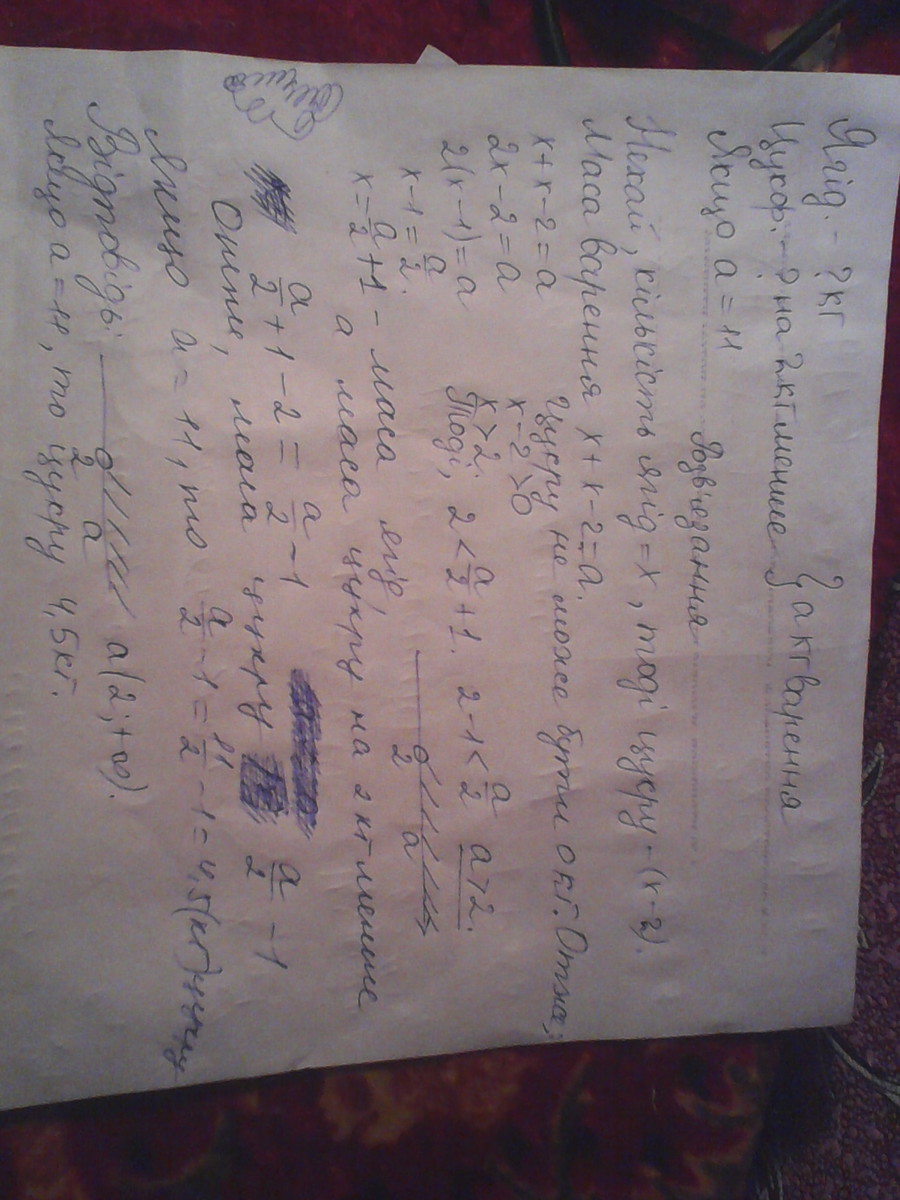 Ягід. - ? кг
Цукор. - ? на 2 кг менше } а кг варення
Якщо а = 11
Розв'язання
Нехай, кількість ягід = х, тоді цукру - (х - 2).
Маса варення х + х - 2 = а.
х + х - 2 = а
2х - 2 = а
2(х - 1) = а
х - 1 = а/2.
х = а/2 + 1 - маса ягід,
Цукру не може бути 0 кг. Отже,
х - 2 > 0
х > 2.
Тоді, 2 < а/2 + 1. 2 - 1 < а/2 а > 2.
2 а
а маса цукру на 2 кг менше.
а/2 + 1 - 2 = а/2 - 1
Отже, маса цукру а/2 - 1
Якщо а = 11, то а/2 - 1 = 11/2 - 1 = 4,5 (кг) цукру
Відповідь: а (2; +∞).
2 а
Якщо а = 11, то цукру 4,5 кг.